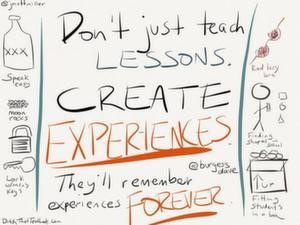 @jmattmiller
Don't just teach
LESSONS.
CREATE
EXPERIENCES.
They'll remember
experiences
FOREVER.
@burgess
dave
XXX
Speak
easy
moon
rocks
work
keys
DitchThatTextbook.com
Red lacy
bra
Finding
shapes
school
UP
Fitting
students
in a box